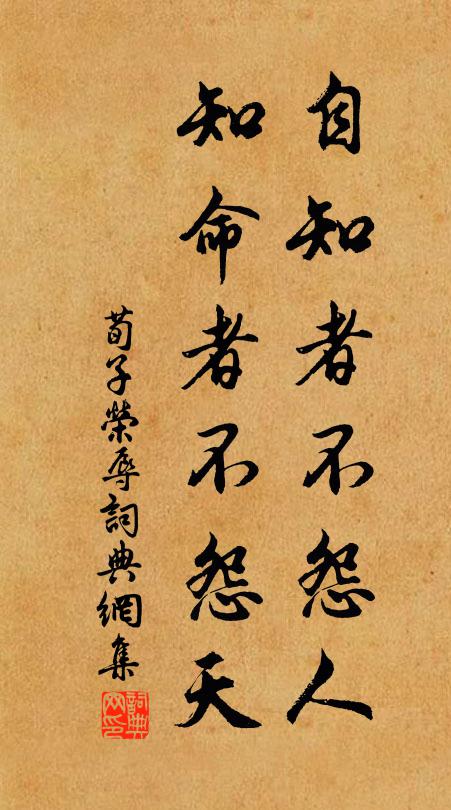 自知者不怨人
知命者不怨天
荀子榮辱詞典網集
詞典
网印